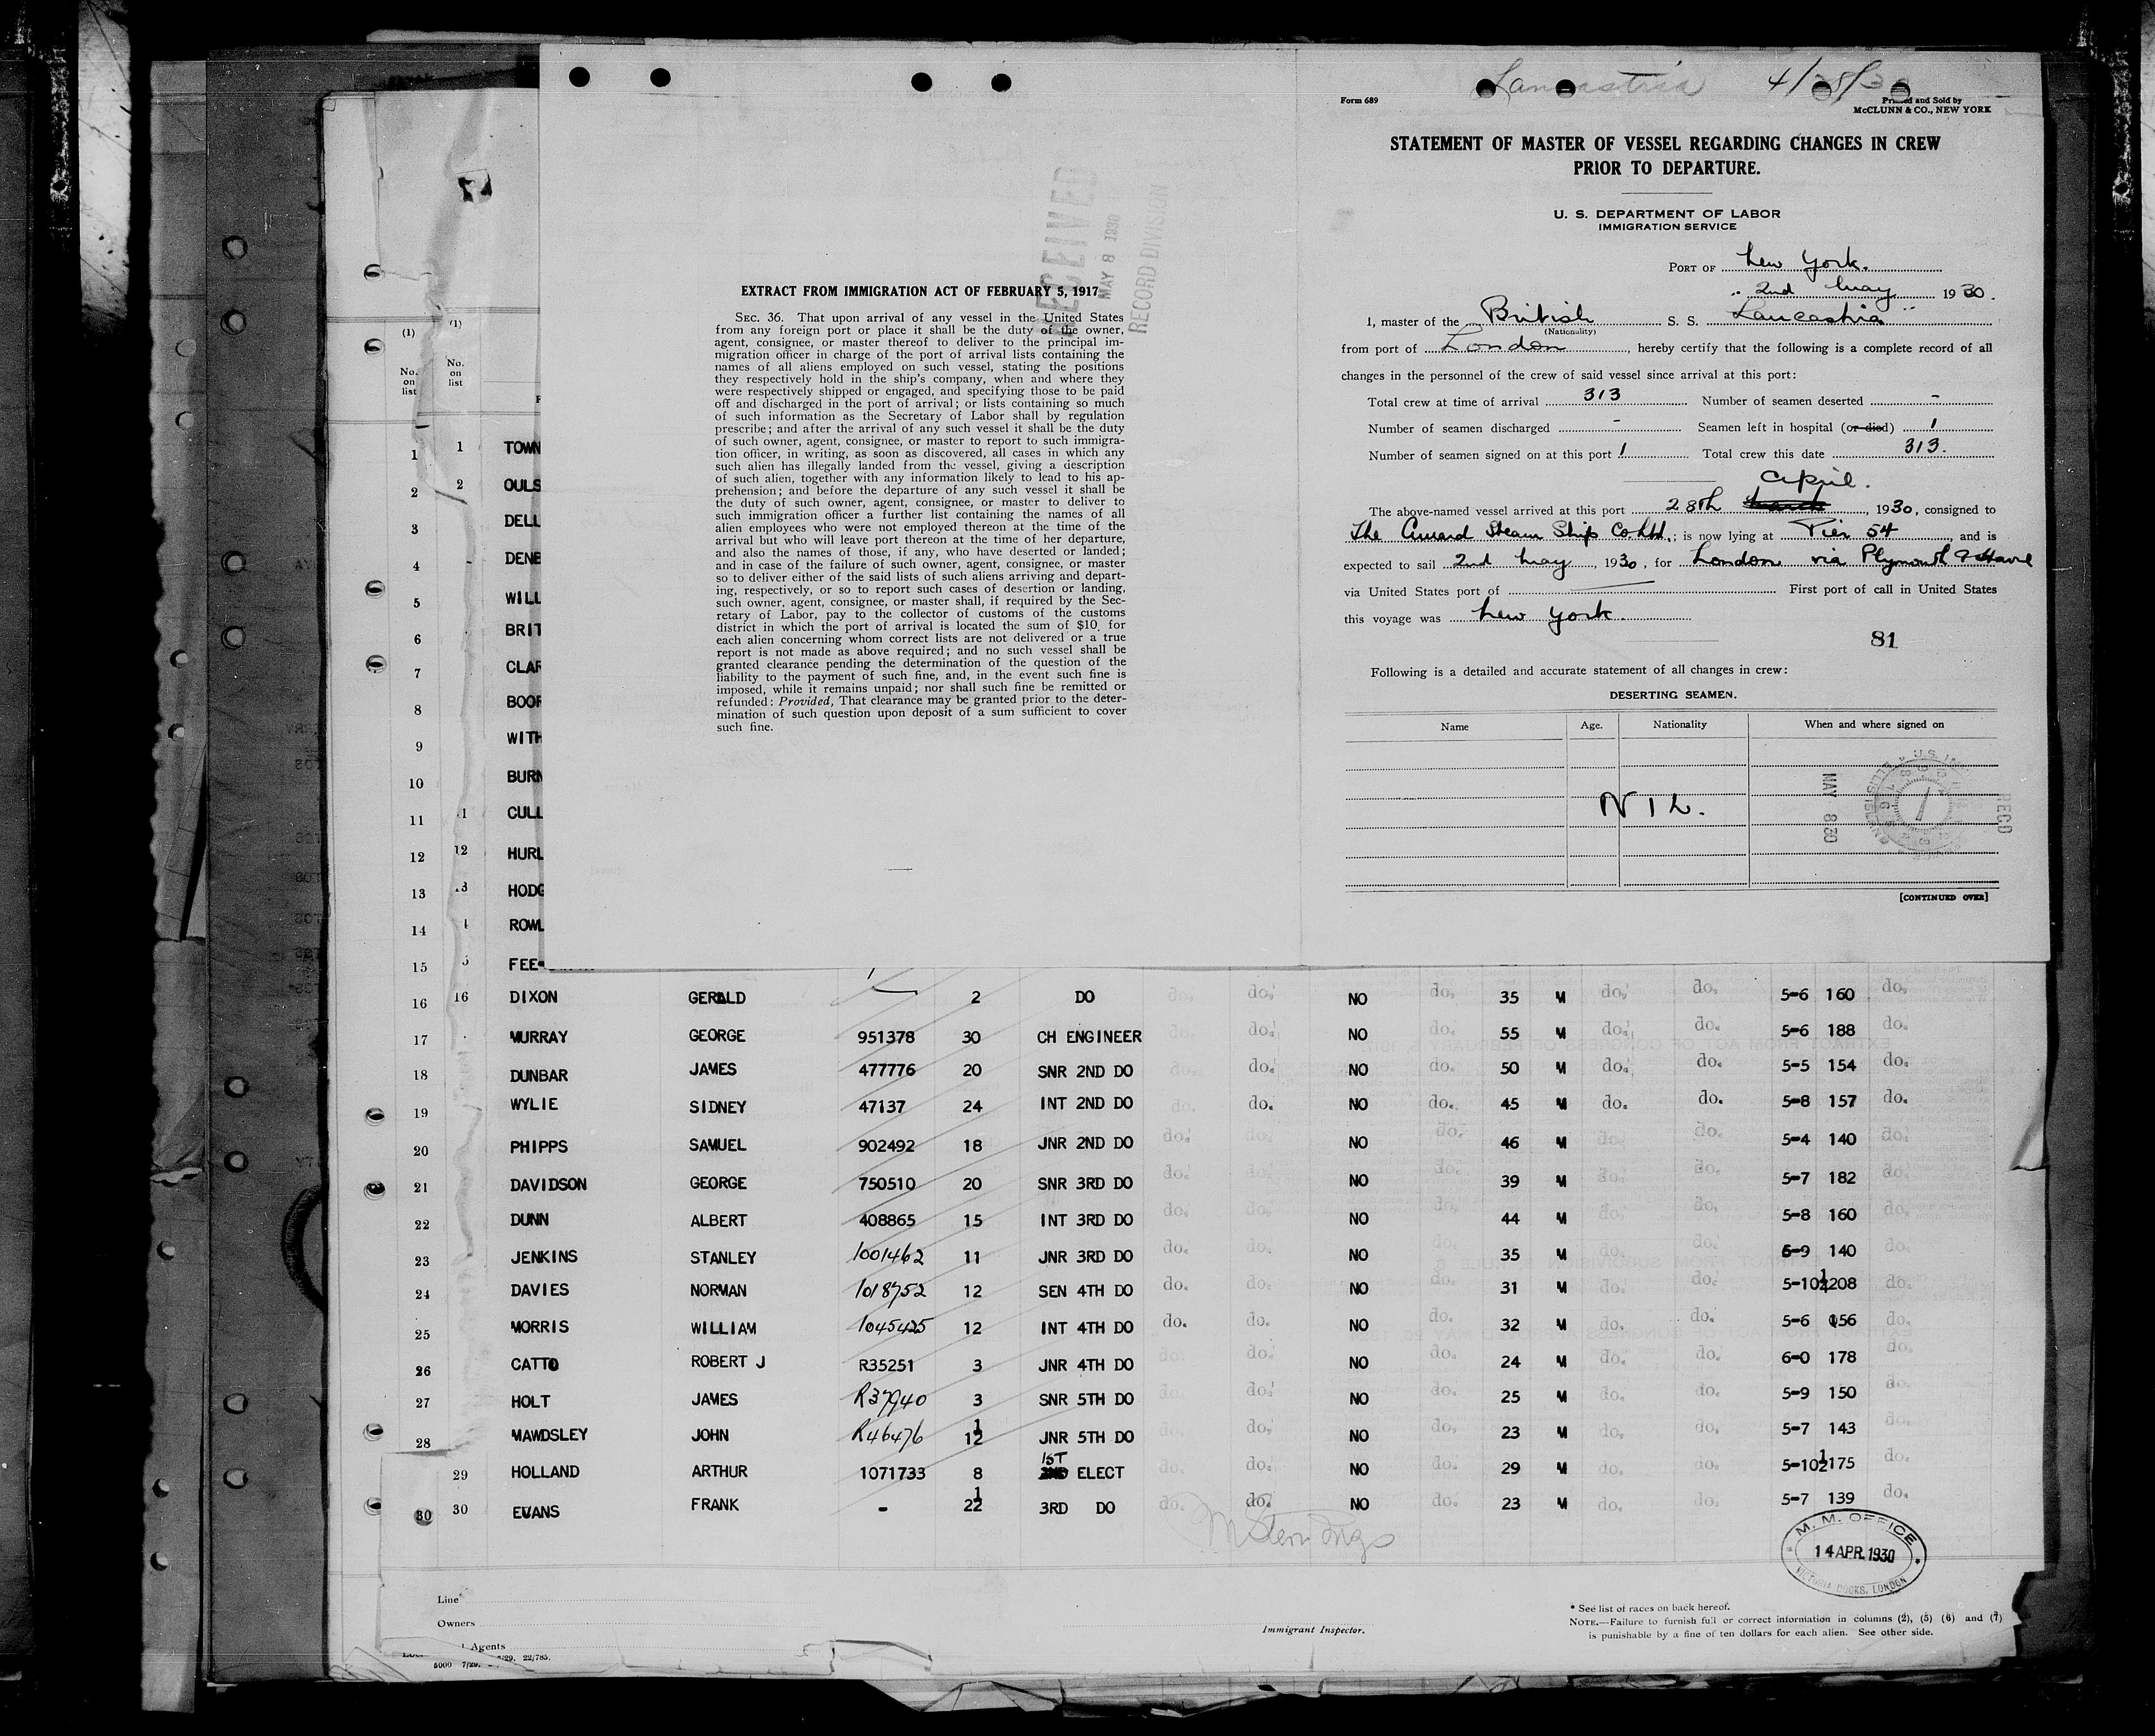 Lancastria 4/28/30
Form 689
Printed and Sold by
McCLUNN & CO., NEW YORK
STATEMENT OF MASTER OF VESSEL REGARDING CHANGES IN CREW
PRIOR TO DEPARTURE.
U. S. DEPARTMENT OF LABOR
IMMIGRATION SERVICE
PORT OF New York.
2nd May 1930.
I, master of the British S. S. Lancastria
(Nationality)
from port of London, hereby certify that the following is a complete record of all
changes in the personnel of the crew of said vessel since arrival at this port:
Total crew at time of arrival 313 Number of seamen deserted -
Number of seamen discharged - Seamen left in hospital (or died) 1
Number of seamen signed on at this port 1 Total crew this date 313.
April.
The above-named vessel arrived at this port 28th March, 1930, consigned to
The Cunard Steam Ship Co Ltd.; is now lying at Pier 54, and is
expected to sail 2nd May, 1930, for London via Plymouth & Havre
via United States port of First port of call in United States
this voyage was New York.
81
Following is a detailed and accurate statement of all changes in crew:
DESERTING SEAMEN.
Name Age. Nationality When and where signed on
NIL.
MAY 8 30
RECD
[CONTINUED OVER]
RECEIVED
MAY 8 1930
RECORD DIVISION
EXTRACT FROM IMMIGRATION ACT OF FEBRUARY 5, 1917
SEC. 36. That upon arrival of any vessel in the United States
from any foreign port or place it shall be the duty of the owner,
agent, consignee, or master thereof to deliver to the principal im-
migration officer in charge of the port of arrival lists containing the
names of all aliens employed on such vessel, stating the positions
they respectively hold in the ship's company, when and where they
were respectively shipped or engaged, and specifying those to be paid
off and discharged in the port of arrival; or lists containing so much
of such information as the Secretary of Labor shall by regulation
prescribe; and after the arrival of any such vessel it shall be the duty
of such owner, agent, consignee, or master to report to such immigra-
tion officer, in writing, as soon as discovered, all cases in which any
such alien has illegally landed from the vessel, giving a description
of such alien, together with any information likely to lead to his ap-
prehension; and before the departure of any such vessel it shall be
the duty of such owner, agent, consignee, or master to deliver to
such immigration officer a further list containing the names of all
alien employees who were not employed thereon at the time of the
arrival but who will leave port thereon at the time of her departure,
and also the names of those, if any, who have deserted or landed;
and in case of the failure of such owner, agent, consignee, or master
so to deliver either of the said lists of such aliens arriving and depart-
ing, respectively, or so to report such cases of desertion or landing,
such owner, agent, consignee, or master shall, if required by the Sec-
retary of Labor, pay to the collector of customs of the customs
district in which the port of arrival is located the sum of $10 for
each alien concerning whom correct lists are not delivered or a true
report is not made as above required; and no such vessel shall be
granted clearance pending the determination of the question of the
liability to the payment of such fine, and, in the event such fine is
imposed, while it remains unpaid; nor shall such fine be remitted or
refunded: Provided, That clearance may be granted prior to the deter-
mination of such question upon deposit of a sum sufficient to cover
such fine.
(1) (1)
No. on list No. on list
1 1 TOWN
2 2 OULS
3 DELL
4 DENB
5 WILL
6 BRIT
7 CLAR
8 BOOR
9 WITH
10 BURN
11 1 CULL
12 12 HURL
13 13 HODG
14 ROWL
15 5 FEE
16 16 DIXON GERALD 2 DO do. do. NO do. 35 M do. do. 5-6 160 do.
17 MURRAY GEORGE 951378 30 CH ENGINEER do. do. NO do. 55 M do. do. 5-6 188 do.
18 DUNBAR JAMES 477776 20 SNR 2ND DO do. do. NO do. 50 M do. do. 5-5 154 do.
19 WYLIE SIDNEY 47137 24 INT 2ND DO do. do. NO do. 45 M do. do. 5-8 157 do.
20 PHIPPS SAMUEL 902492 18 JNR 2ND DO do. do. NO do. 46 M do. do. 5-4 140 do.
21 DAVIDSON GEORGE 750510 20 SNR 3RD DO do. do. NO do. 39 M do. do. 5-7 182 do.
22 DUNN ALBERT 408865 15 INT 3RD DO do. do. NO do. 44 M do. do. 5-8 160 do.
23 JENKINS STANLEY 1001462 11 JNR 3RD DO do. do. NO do. 35 M do. do. 6-9 140 do.
24 DAVIES NORMAN 1018752 12 SEN 4TH DO do. do. NO do. 31 M do. do. 5-10½ 208 do.
25 MORRIS WILLIAM 1045425 12 INT 4TH DO do. do. NO do. 32 M do. do. 5-6 156 do.
26 CATTO ROBERT J R35251 3 JNR 4TH DO do. do. NO do. 24 M do. do. 6-0 178 do.
27 HOLT JAMES R37940 3 SNR 5TH DO do. do. NO do. 25 M do. do. 5-9 150 do.
28 MAWDSLEY JOHN R46476 1½ JNR 5TH DO do. do. NO do. 23 M do. do. 5-7 143 do.
29 HOLLAND ARTHUR 1071733 8 1ST ELECT do. do. NO do. 29 M do. do. 5-10½ 175 do.
30 30 EVANS FRANK - 2½ 3RD DO do. do. NO do. 23 M do. do. 5-7 139 do.
M. M. OFFICE
14 APR. 1930
VICTORIA DOCKS, LONDON
Line
Owners
Agents
5000 7/29. 22/785.
Immigrant Inspector.
* See list of races on back hereof.
NOTE.—Failure to furnish full or correct information in columns (2), (5) (6) and (7)
is punishable by a fine of ten dollars for each alien. See other side.